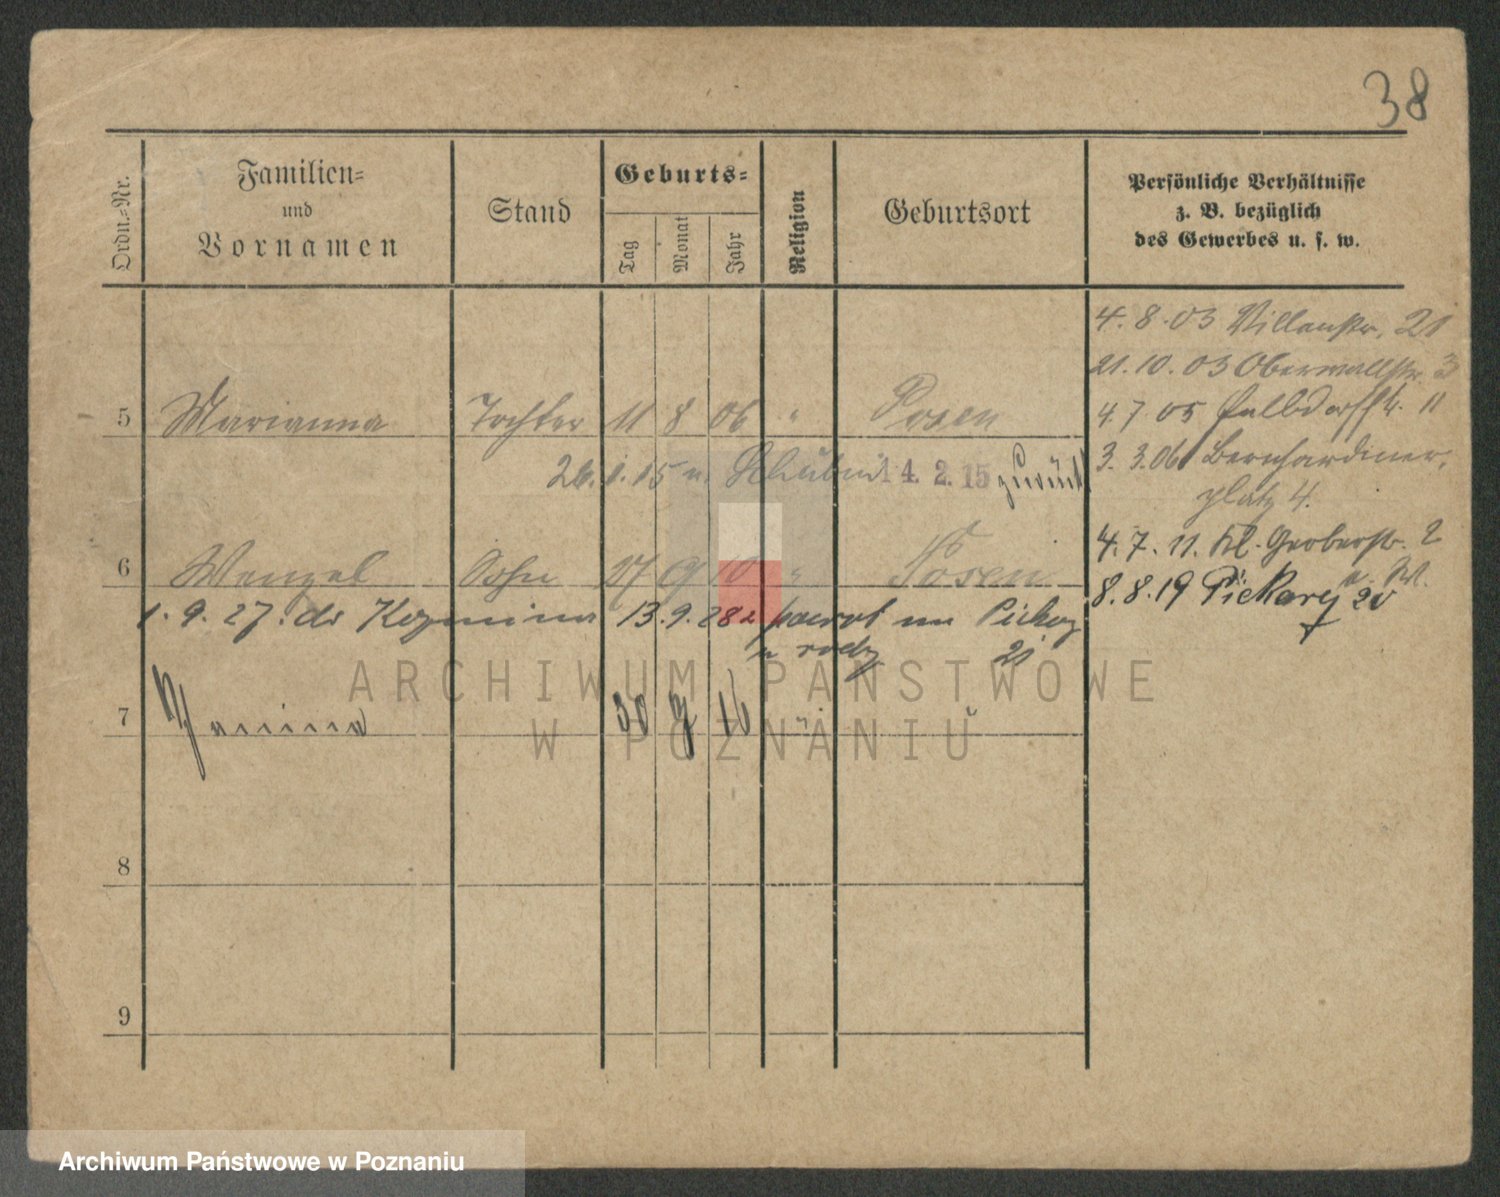 38
Ordn.-Nr.
Familien- und Vornamen
Stand
Geburts-
Tag
Monat
Jahr
Religion
Geburtsort
Persönliche Verhältnisse
z. B. bezüglich
des Gewerbes u. s. w.
4. 8. 03 Villenstr. 21
21. 10. 03 Oberwallstr. 3
5 Marianna Tochter 11 8 06 " Posen
4. 7 05 11
26. 1. 15 n. Schubin 14. 2. 15 zurück
3. 3. 06 Bernhardiner-
platz 4.
4. 7. 11. Kl. Gerberstr. 2
6 Wenzel Sohn 27 9 10 " Posen
8. 8. 19 Piekary 20
1. 9. 27. do Kozmina 13. 9. 282 powrót
21
7 Janina 30 16 " "
8
9
ARCHIWUM PAŃSTWOWE
W POZNANIU
Archiwum Państwowe w Poznaniu